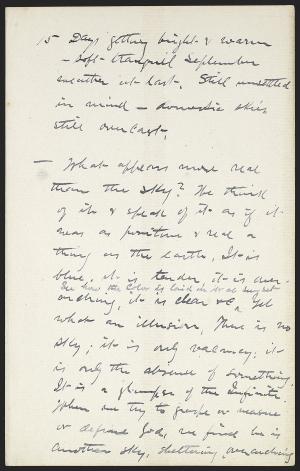 15 Days getting bright & warm
— soft tranquil September
weather at last. Still unsettled
in mind — domestic skies
still overcast.
— What appears more real
than the sky? We think
of it & speak of it as if it
was as positive & real a
thing as the earth. It is
blue, it is tender, it is over-
See how the color is laid on it at sunset
arching, it is clear &c. Yet
what an illusion. There is no
sky; it is only vacancy; it
is only the absence of something.
It is a glimpse of the Infinite.
When we try to grasp or measure
or define God, we find he is
another sky, sheltering, overarching